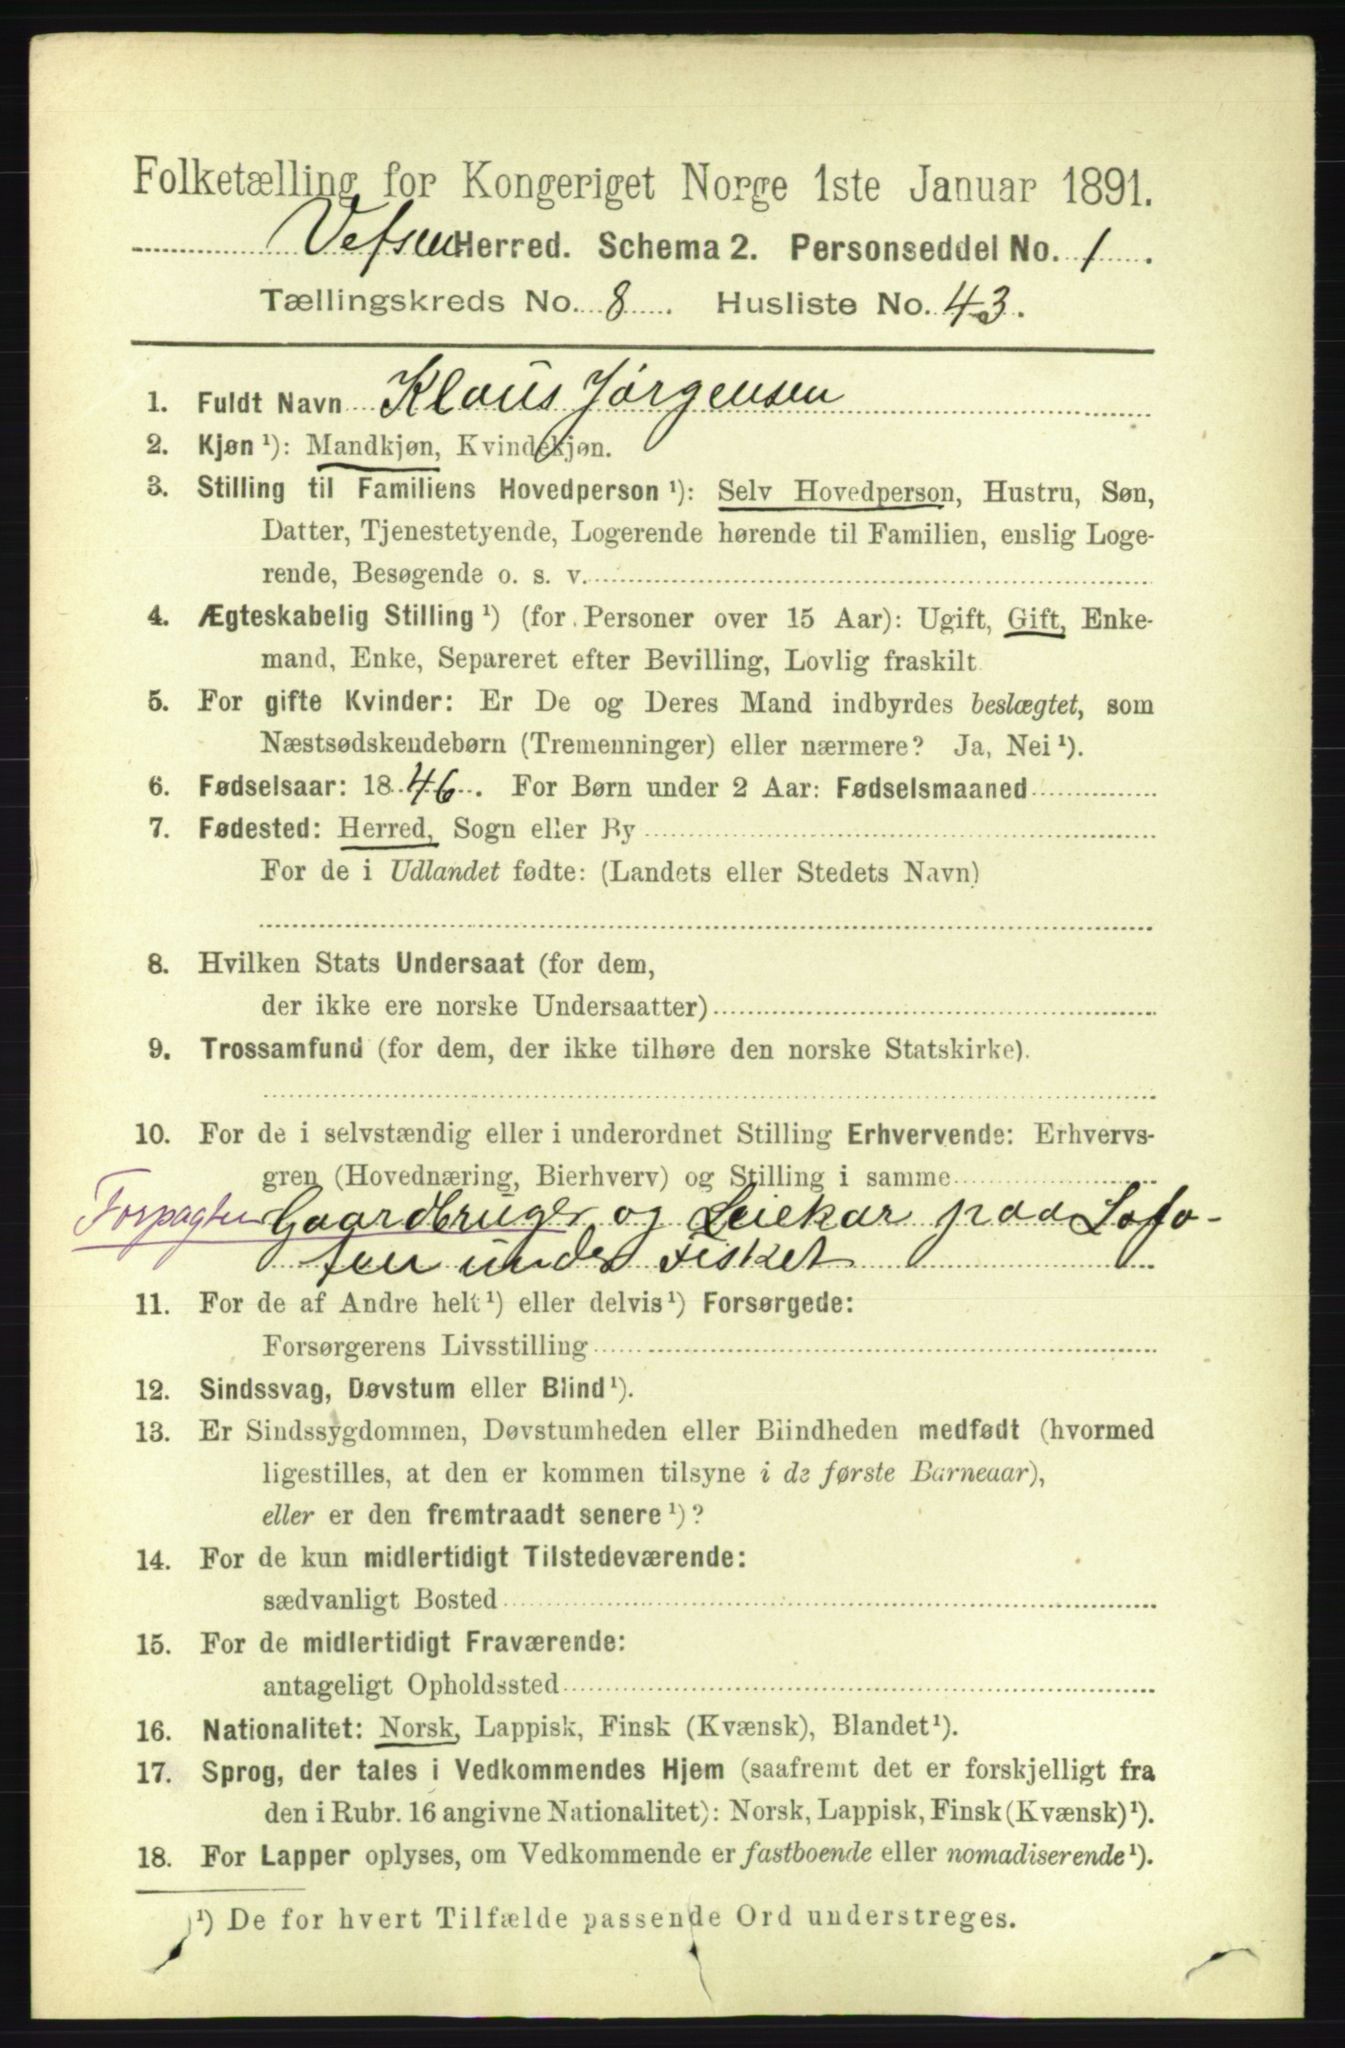 Folketælling for Kongeriget Norge 1ste Januar 1891.
Vefsen Herred. Schema 2. Personseddel No. 1.
Tællingskreds No. 8. Husliste No. 43.
1. Fuldt Navn Klaus Jørgensen
2. Kjøn ¹): Mandkjøn, Kvindekjøn.
3. Stilling til Familiens Hovedperson ¹): Selv Hovedperson, Hustru, Søn,
Datter, Tjenestetyende, Logerende hørende til Familien, enslig Loge-
rende, Besøgende o. s. v.
4. Ægteskabelig Stilling ¹) (for Personer over 15 Aar): Ugift, Gift, Enke-
mand, Enke, Separeret efter Bevilling, Lovlig fraskilt
5. For gifte Kvinder: Er De og Deres Mand indbyrdes beslægtet, som
Næstsødskendebørn (Tremenninger) eller nærmere? Ja, Nei ¹).
6. Fødselsaar: 1846. For Børn under 2 Aar: Fødselsmaaned
7. Fødested: Herred, Sogn eller By
For de i Udlandet fødte: (Landets eller Stedets Navn)
8. Hvilken Stats Undersaat (for dem,
der ikke ere norske Undersaatter)
9. Trossamfund (for dem, der ikke tilhøre den norske Statskirke).
10. For de i selvstændig eller i underordnet Stilling Erhvervende: Erhvervs-
gren (Hovednæring, Bierhverv) og Stilling i samme
Forpagter Gaardbruger og Leiekar paa Lofo-
ten under Fisket
11. For de af Andre helt ¹) eller delvis ¹) Forsørgede:
Forsørgerens Livsstilling
12. Sindssvag, Døvstum eller Blind ¹).
13. Er Sindssygdommen, Døvstumheden eller Blindheden medfødt (hvormed
ligestilles, at den er kommen tilsyne i de første Barneaar),
eller er den fremtraadt senere ¹)?
14. For de kun midlertidigt Tilstedeværende:
sædvanligt Bosted
15. For de midlertidigt Fraværende:
antageligt Opholdssted
16. Nationalitet: Norsk, Lappisk, Finsk (Kvænsk), Blandet ¹).
17. Sprog, der tales i Vedkommendes Hjem (saafremt det er forskjelligt fra
den i Rubr. 16 angivne Nationalitet): Norsk, Lappisk, Finsk (Kvænsk) ¹).
18. For Lapper oplyses, om Vedkommende er fastboende eller nomadiserende ¹).
¹) De for hvert Tilfælde passende Ord understreges.